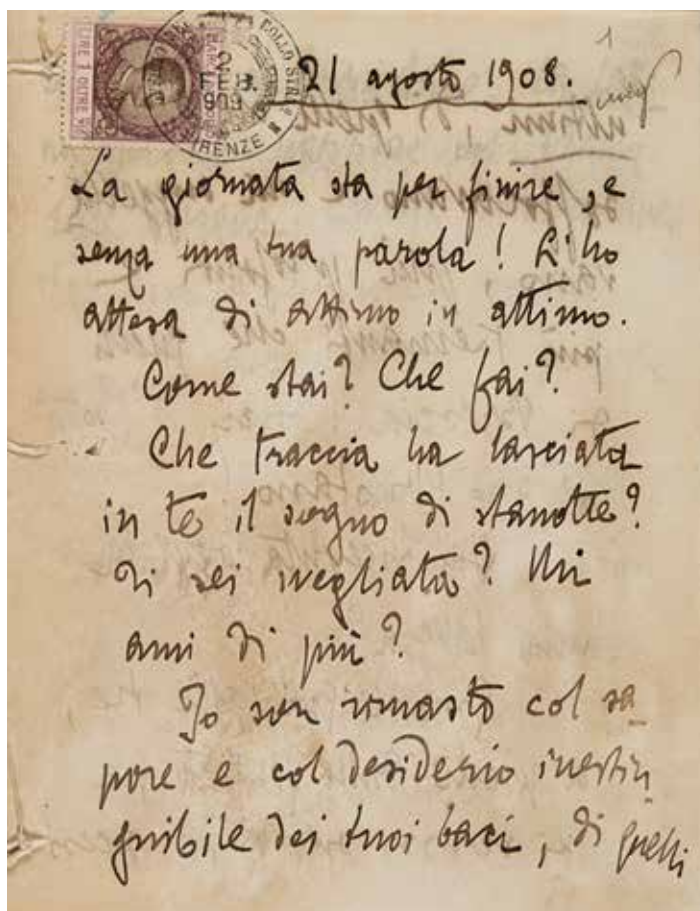 LIRE 1 OLTRE
BOLLO STR.
2
FEB.
909
FIRENZE
1
21 agosto 1908.
La giornata sta per finire, e
senza una tua parola! L'ho
attesa di attimo in attimo.
Come stai? Che fai?
Che traccia ha lasciata
in te il sogno di stanotte?
Ti sei svegliata? Mi
ami di più?
Io son rimasto col sa-
pore e col desiderio inestin-
guibile dei tuoi baci, di quelli